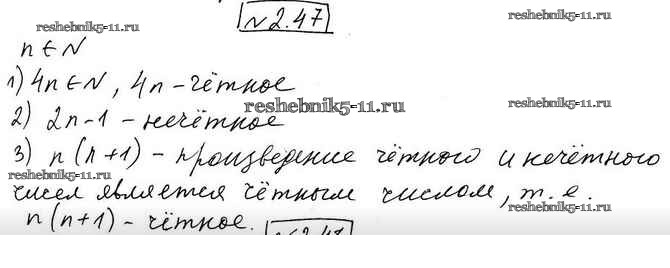 №2.47
reshebnik5-11.ru
reshebnik5-11.ru
n ∈ N
1) 4n ∈ N, 4n - чётное
reshebnik5-11.ru
reshebnik5-11.ru
2) 2n-1 - нечётное
3) n(n+1) - произведение чётного и нечётного
reshebnik5-11.ru
чисел является чётным числом, т.е.
reshebnik5-11.ru
n(n+1) - чётное.